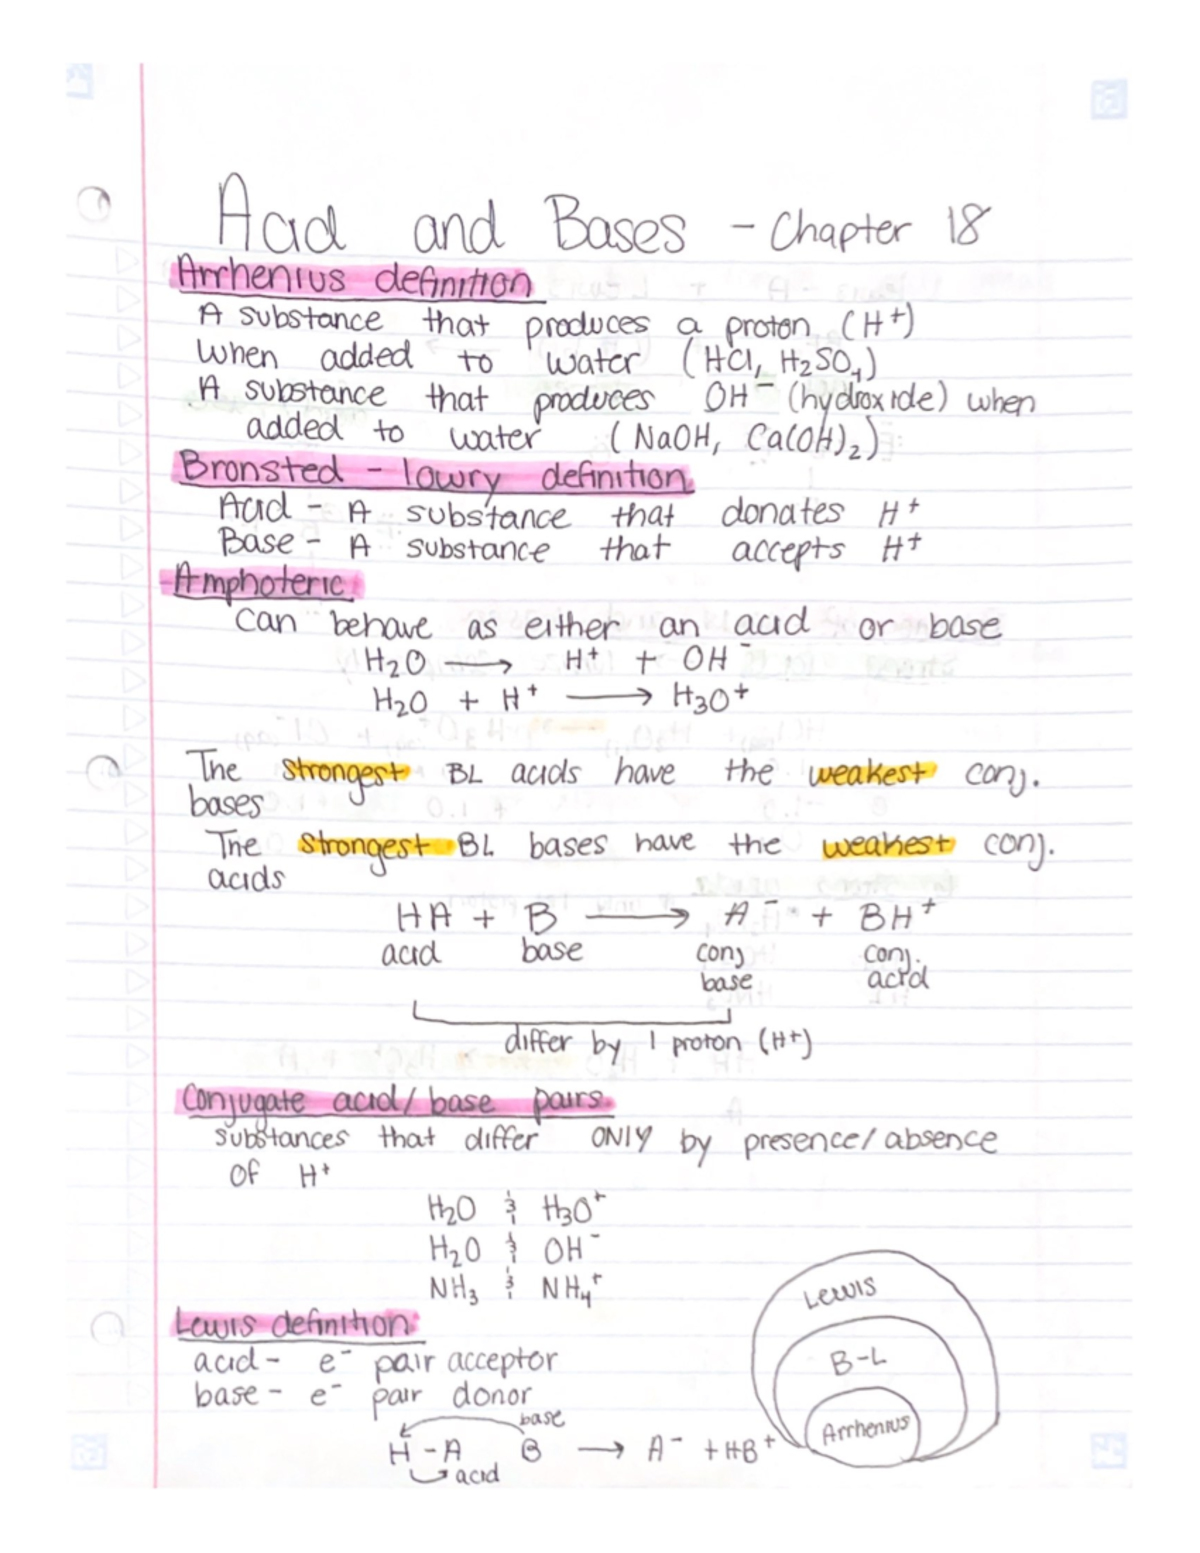 Acid and Bases - Chapter 18
Arrhenius definition
A substance that produces a proton (H⁺)
when added to water (HCl, H₂SO₄)
A substance that produces OH⁻ (hydroxide) when
added to water (NaOH, Ca(OH)₂)
Bronsted - lowry definition
Acid - A substance that donates H⁺
Base - A substance that accepts H⁺
Amphoteric
can behave as either an acid or base
H₂O ⟶ H⁺ + OH⁻
H₂O + H⁺ ⟶ H₃O⁺
The strongest BL acids have the weakest conj.
bases
The strongest BL bases have the weakest conj.
acids
HA + B ⟶ A⁻ + BH⁺
acid base conj conj.
base acid
differ by 1 proton (H⁺)
Conjugate acid/base pairs
substances that differ ONLY by presence/absence
of H⁺
H₂O & H₃O⁺
H₂O & OH⁻
NH₃ & NH₄⁺
Lewis definition
acid - e⁻ pair acceptor
base - e⁻ pair donor
base
H - A B ⟶ A⁻ + HB⁺
acid
Lewis
B-L
Arrhenius